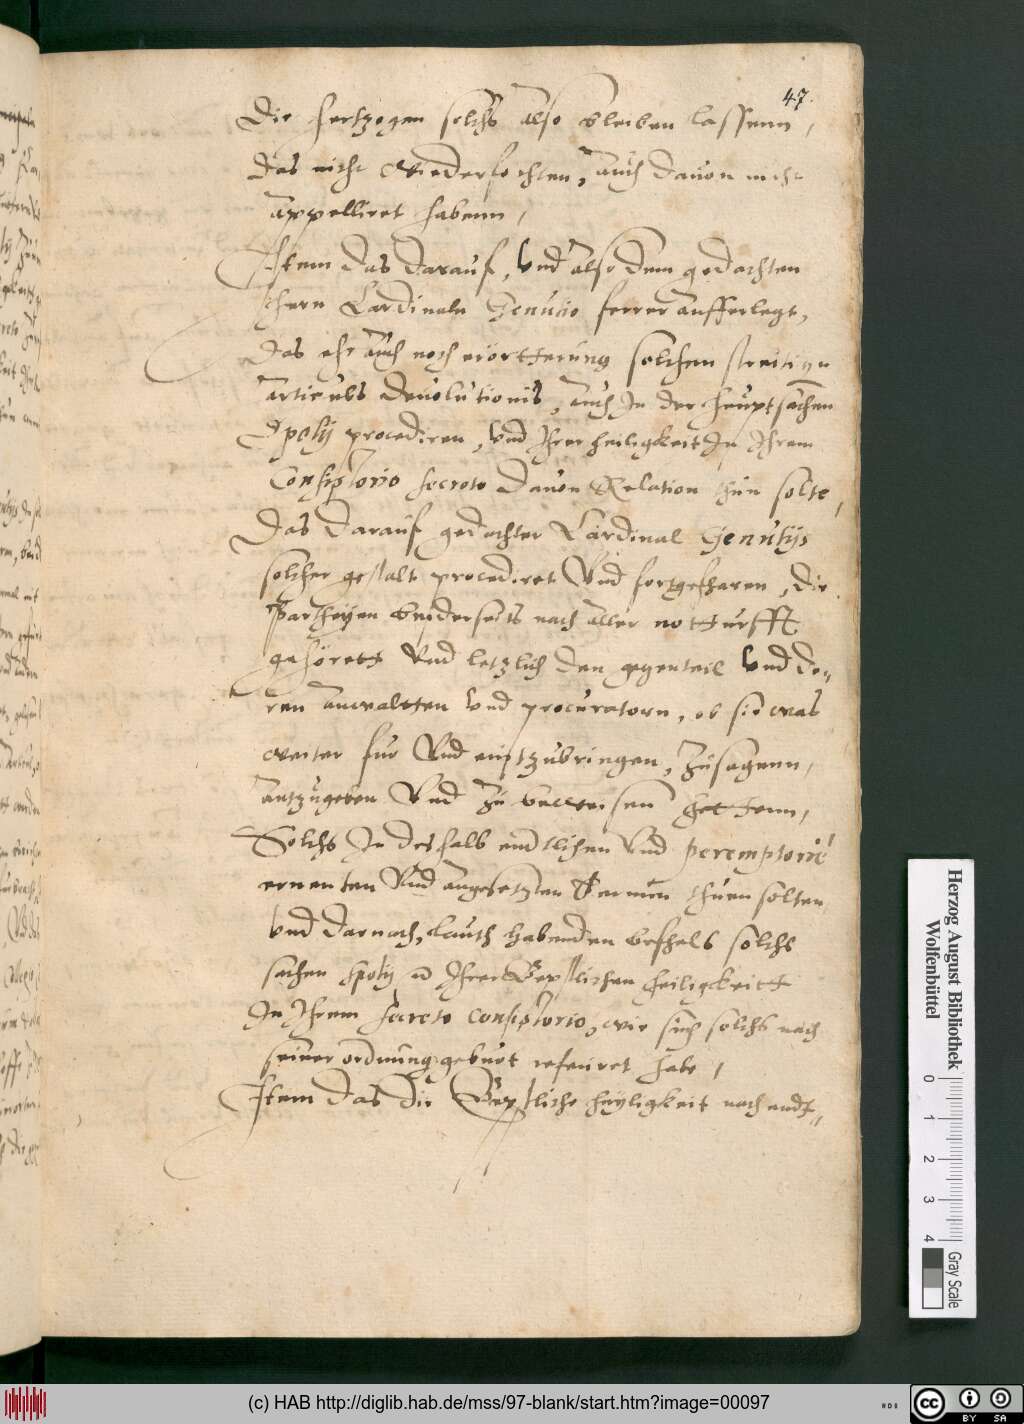 47.
Die hertzogen solchs also bleiben lassenn,
das nicht wiederfochten, auch dauon nicht
appelliret habenn,
Item das darauf, vnd also dem gedachten
hern Cardinaln Genucio ferrer aufferlegt,
das ehr auch noch erörtterung solchen streitign
articuls deuolutionis, auch In der heuptsachen
Spolij procediren, vnd Ihrer heiligkeit In Ihrem
Consistorio secreto dauon Relation thun solte,
Das darauf gedachter Cardinal Genutijs
solcher gestalt procediret Vnd fortgefharen, die
Partheyen beiderseits nach aller notturfft
gehörett Vnd letzlich den gegenteil vnd de-
ren anwaltten vnd procuratorn, ob sie was
weiter fur Vnd eintzubringen, zusagenn,
antzugeben Vnd zu beweisen hettenn,
Solchs In deshalb endtlichen vnd peremptorie
ernenten Vnd angesetzten Termin thuen solten
vnd darnach, lauth habenden befhels solchs
sachen spolij an Ihrer Bepstlichen heiligkeitt
In Ihrem secreto Consistorio, wie sich solchs nach
seiner ordnung geburt referiret habe,
Item das die Bepstliche heyligkeit nach endt-
Herzog August Bibliothek
Wolfenbüttel
0 1 2 3 4
Gray Scale
(c) HAB http://diglib.hab.de/mss/97-blank/start.htm?image=00097
cc BY SA